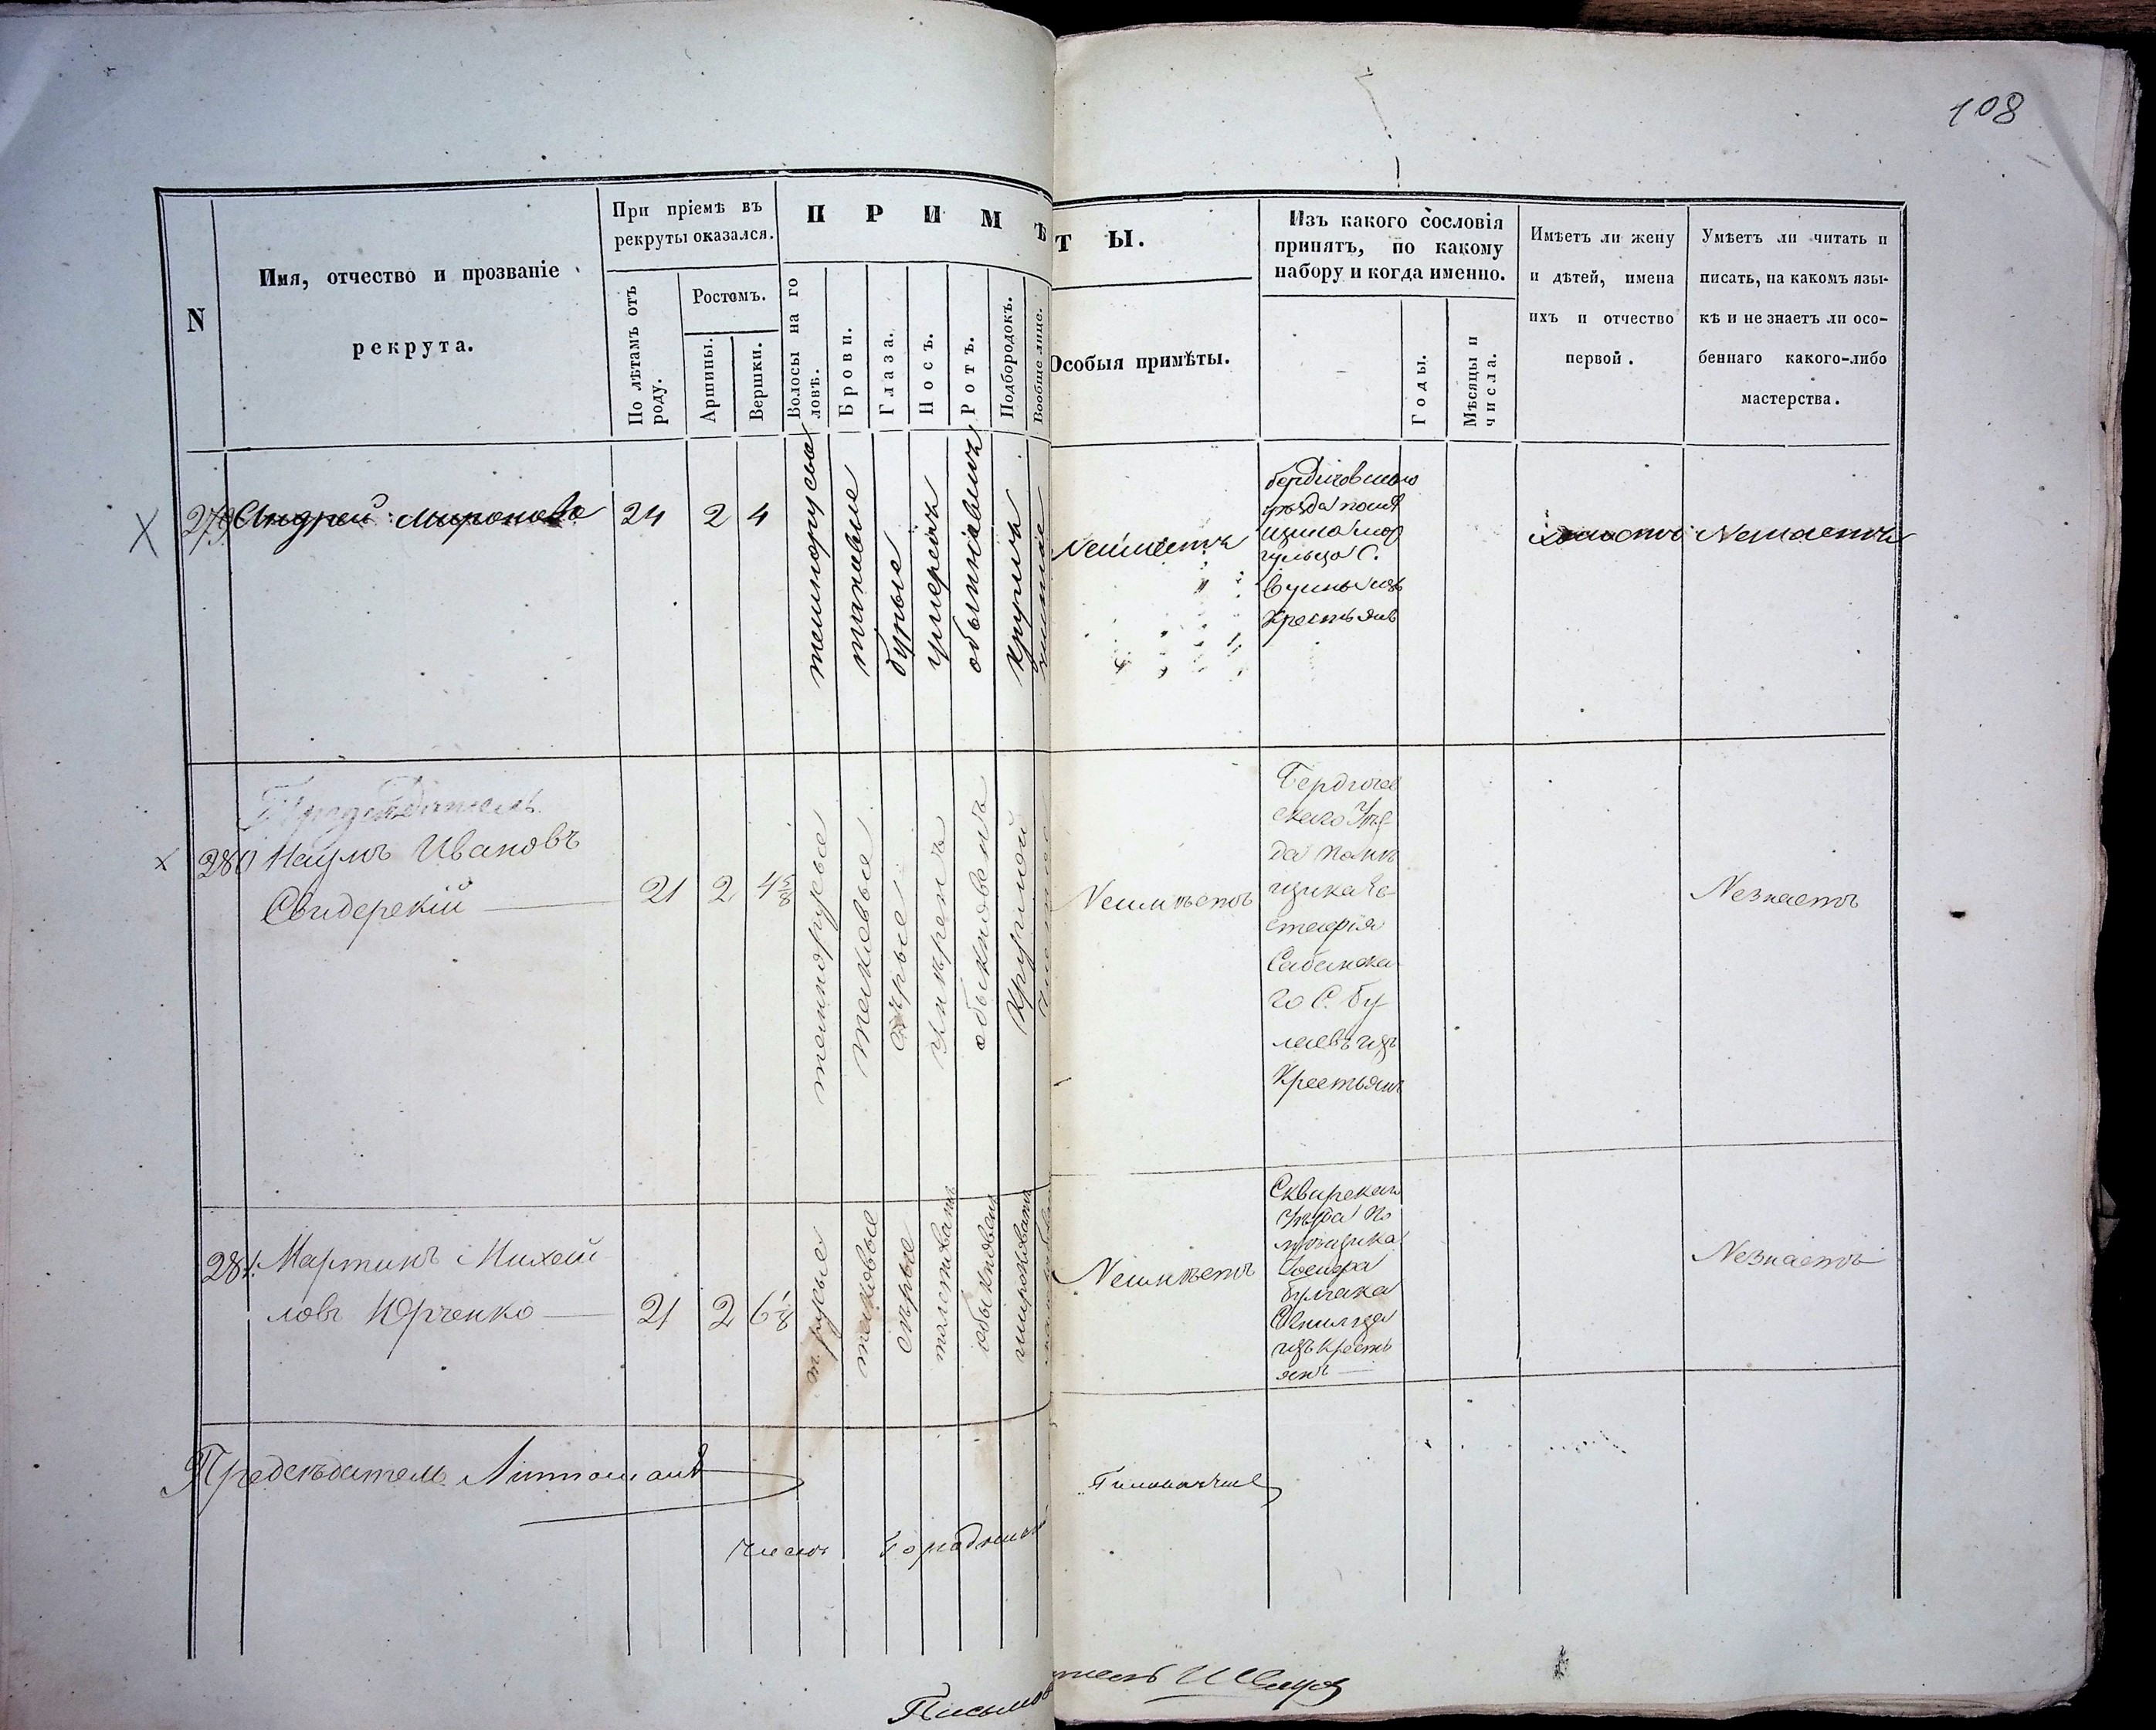 108
N
Имя, отчество и прозваніе
рекрута.
При пріемѣ въ
рекруты оказался.
По лѣтамъ отъ
роду.
Ростомъ.
Аршины.
Вершки.
ПРИМѢТЫ.
Волосы на го
ловѣ.
Брови.
Глаза.
Носъ.
Ротъ.
Подбородокъ.
Вообще лице.
Особыя примѣты.
Изъ какого сословія
принятъ, по какому
набору и когда именно.
Годы.
Мѣсяцы и
числа.
Имѣетъ ли жену
и дѣтей, имена
ихъ и отчество
первой.
Умѣетъ ли читать и
писать, на какомъ язы-
кѣ и не знаетъ ли осо-
беннаго какого-либо
мастерства.
279 Андрей Миронова
24
2
4
темнорусые
таковые
бурые
умеренъ
обыкновенъ
круглъ
чистое
Неимеетъ
бердичовского
уезда поме
щика
С.
изъ
Крестьянъ
холостъ
Незнаетъ
Председатель
280 Наумъ Ивановъ
Свидерскій
21
2
4 5/8
темнорусые
таковые
сѣрые
умѣренъ
обыкновенъ
Круглой
чистое
Неимѣетъ
Бердичев
скаго Уѣз-
да помѣ
щика
Сабанска
го С. бу
лаевъ изъ
Крестьянъ
Незнаетъ
281. Мартинъ Михей
ловъ Юрченко
21
2
6 1/8
т. русые
таковые
сѣрые
обыкновенъ
широковатъ
Неимѣетъ
Сквирскаго
Уѣзда по
мѣщика
изъ кресть
янъ
Незнаетъ
Предсѣдатель
Членъ